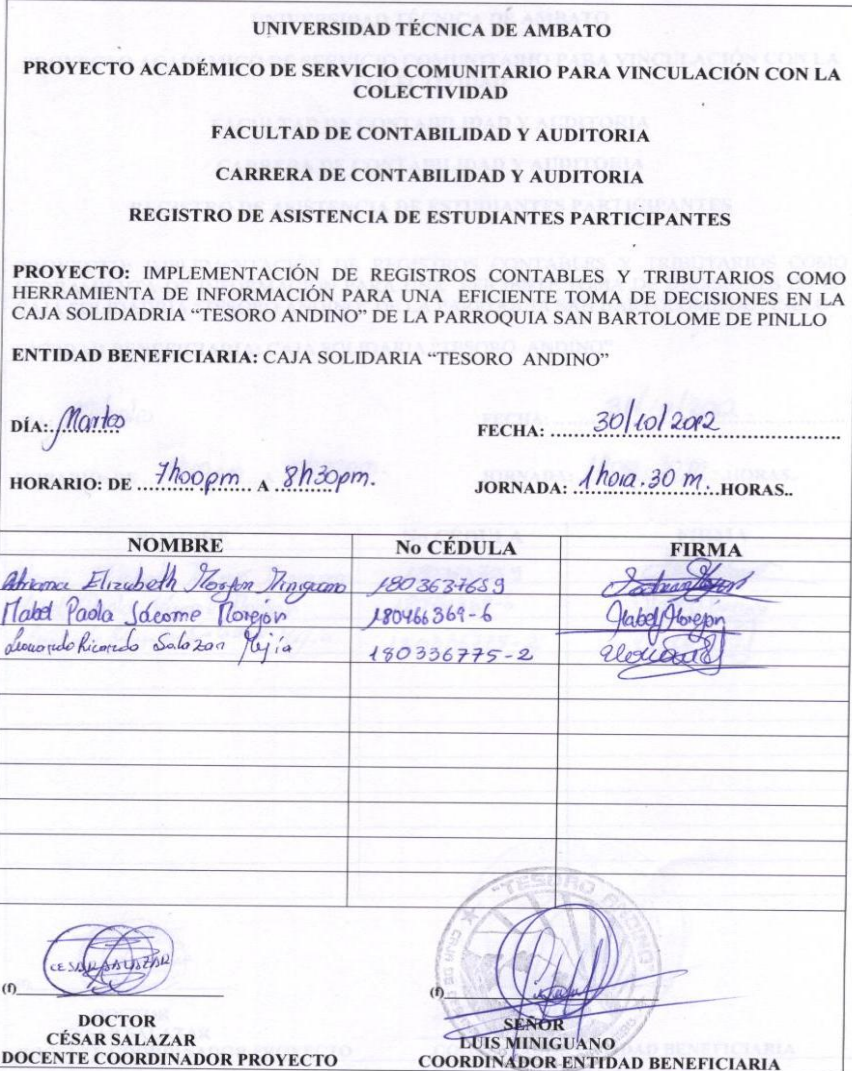 UNIVERSIDAD TÉCNICA DE AMBATO
PROYECTO ACADÉMICO DE SERVICIO COMUNITARIO PARA VINCULACIÓN CON LA
COLECTIVIDAD
FACULTAD DE CONTABILIDAD Y AUDITORIA
CARRERA DE CONTABILIDAD Y AUDITORIA
REGISTRO DE ASISTENCIA DE ESTUDIANTES PARTICIPANTES
PROYECTO: IMPLEMENTACIÓN DE REGISTROS CONTABLES Y TRIBUTARIOS COMO
HERRAMIENTA DE INFORMACIÓN PARA UNA EFICIENTE TOMA DE DECISIONES EN LA
CAJA SOLIDADRIA “TESORO ANDINO” DE LA PARROQUIA SAN BARTOLOME DE PINLLO
ENTIDAD BENEFICIARIA: CAJA SOLIDARIA “TESORO ANDINO”
DÍA: Martes FECHA: 30/10/2012
HORARIO: DE 7h00pm A 8h30pm. JORNADA: 1hora.30 m. HORAS..
NOMBRE No CÉDULA FIRMA
Adriana Elizabeth Morejon Miniguano 1803637659
Mabel Paola Jácome Morejón 180466369-6 Mabel Morejon
Leonardo Ricardo Salazar Mejia 180336775-2
"TESORO ANDINO"
CESAR SALAZAR
(f) (f)
DOCTOR SEÑOR
CÉSAR SALAZAR LUIS MINIGUANO
DOCENTE COORDINADOR PROYECTO COORDINADOR ENTIDAD BENEFICIARIA